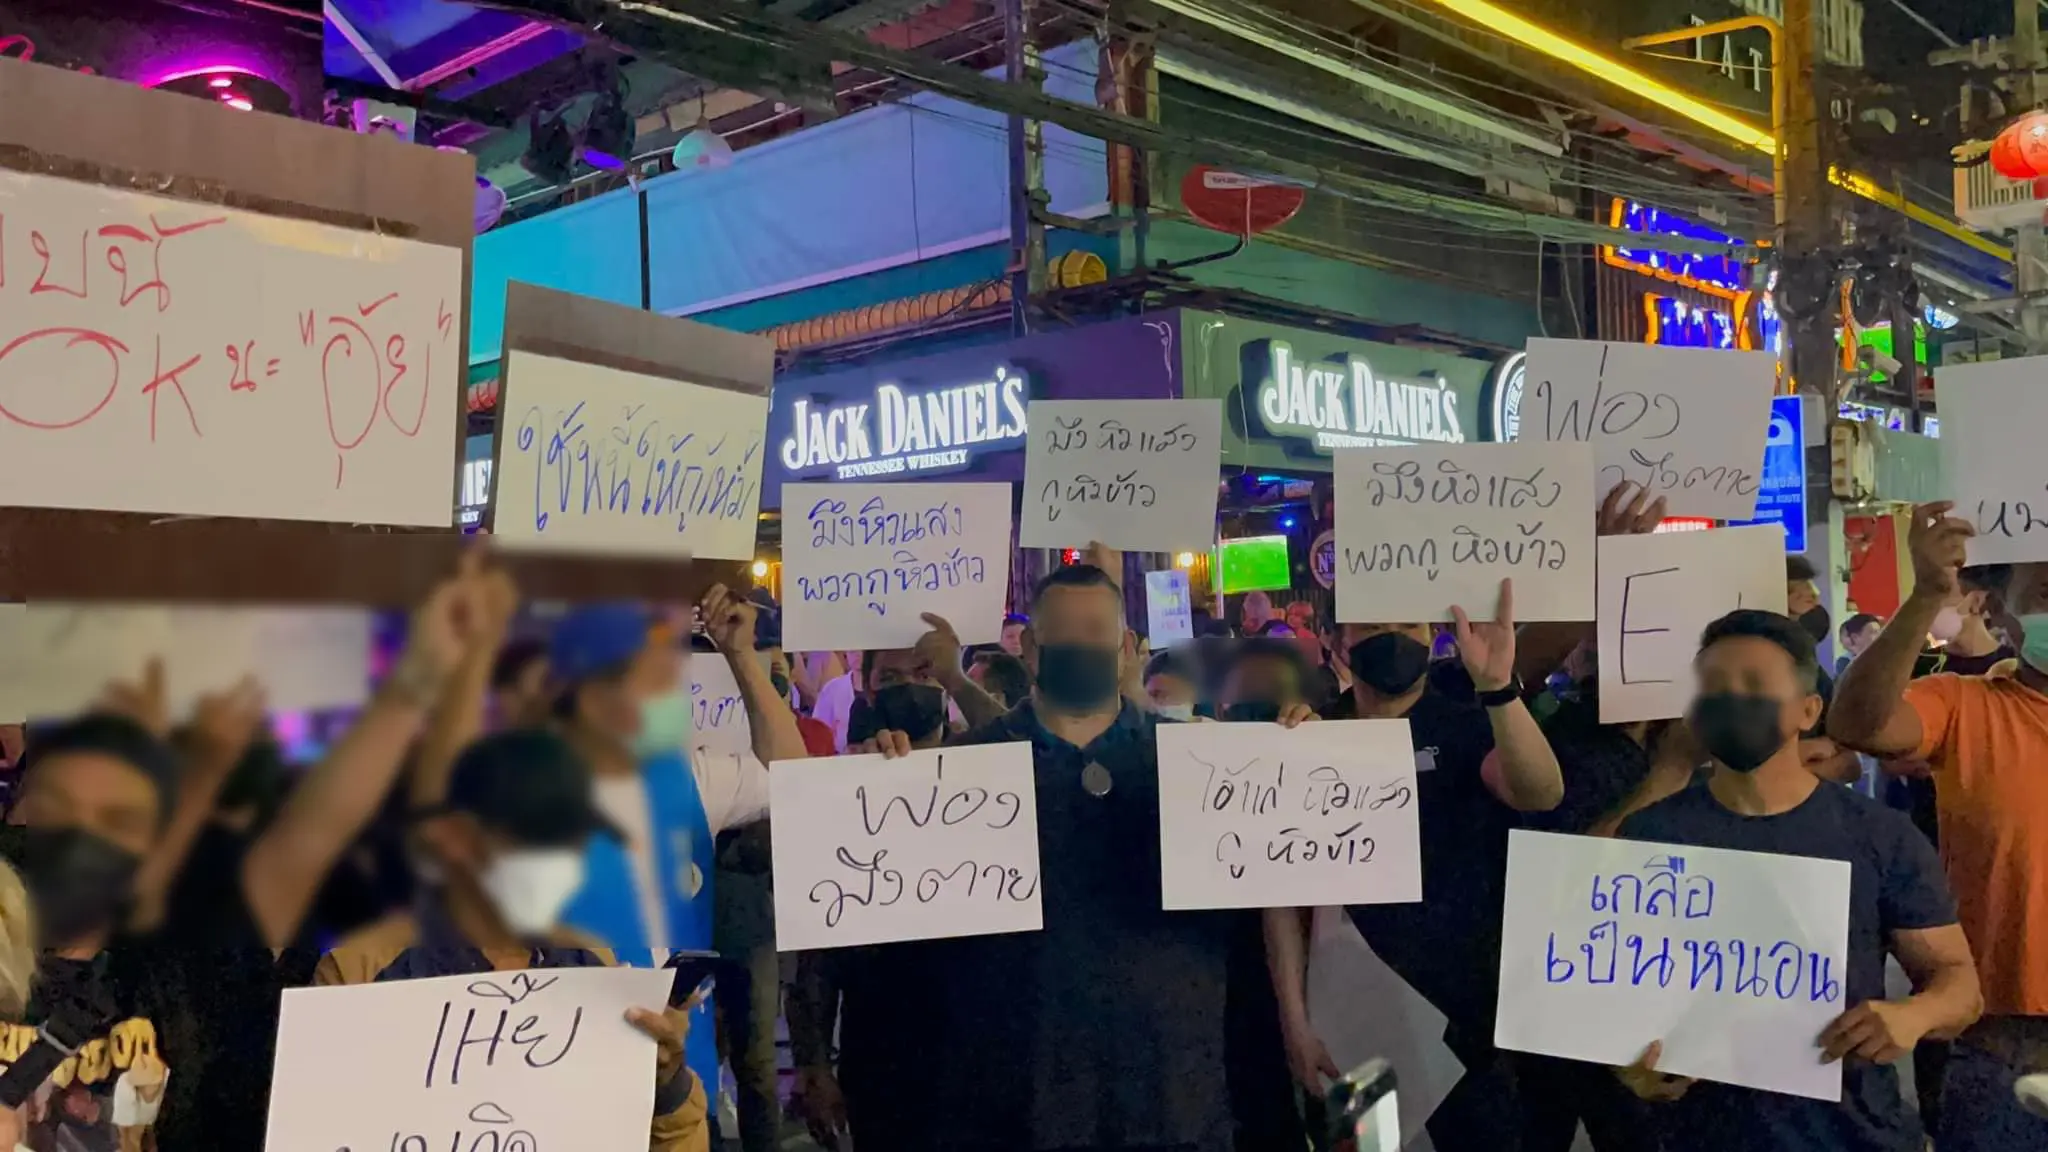 ยนี้
OK นะ "อุ้ย"
ใช้หนี้ให้กูไหม
JACK DANIEL'S
TENNESSEE WHISKEY
มึงหิวแสง
กูหิวข้าว
มึงหิวแสง
พวกกูหิวข้าว
JACK DANIEL'S
TENNESSEE WHISKEY
มึงหิวแสง
พวกกูหิวข้าว
พ่อง
มึงตาย
E
พ่อง
มึงตาย
ไอ้แก่ หิวแสง
กู หิวข้าว
เกลือ
เป็นหนอน
เหี้ย
TAT